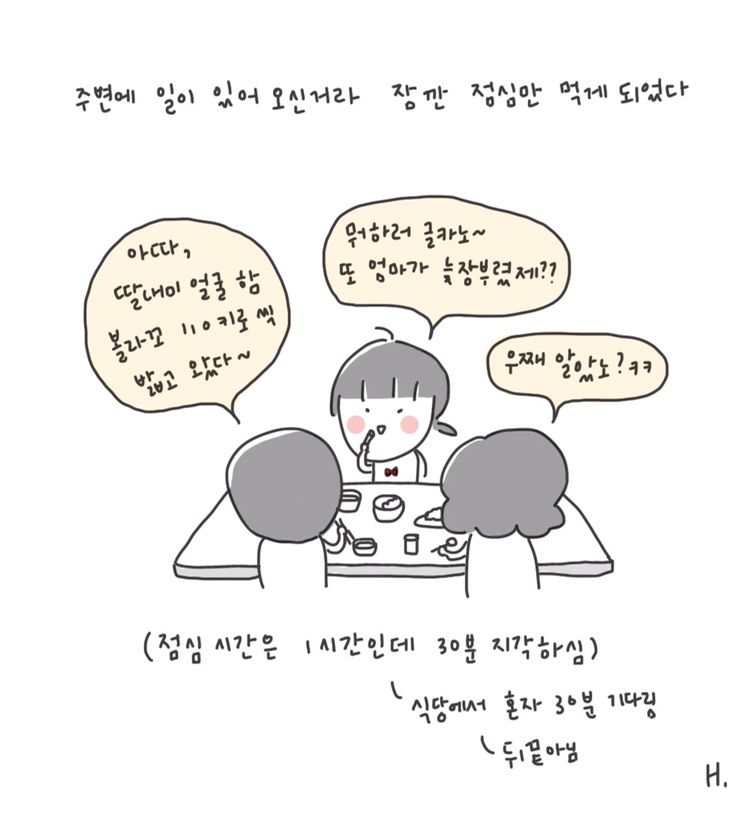 주변에 일이 있어 오신거라 잠깐 점심만 먹게 되었다
아따,
딸내미 얼굴 함
볼라꼬 110키로 씩
밟고 왔다~
뭐하러 글카노~
또 엄마가 늦장부렸제??
우째 알았노?ㅋㅋ
(점심 시간은 1시간인데 30분 지각하심)
식당에서 혼자 30분 기다림
뒤끝아님
H.